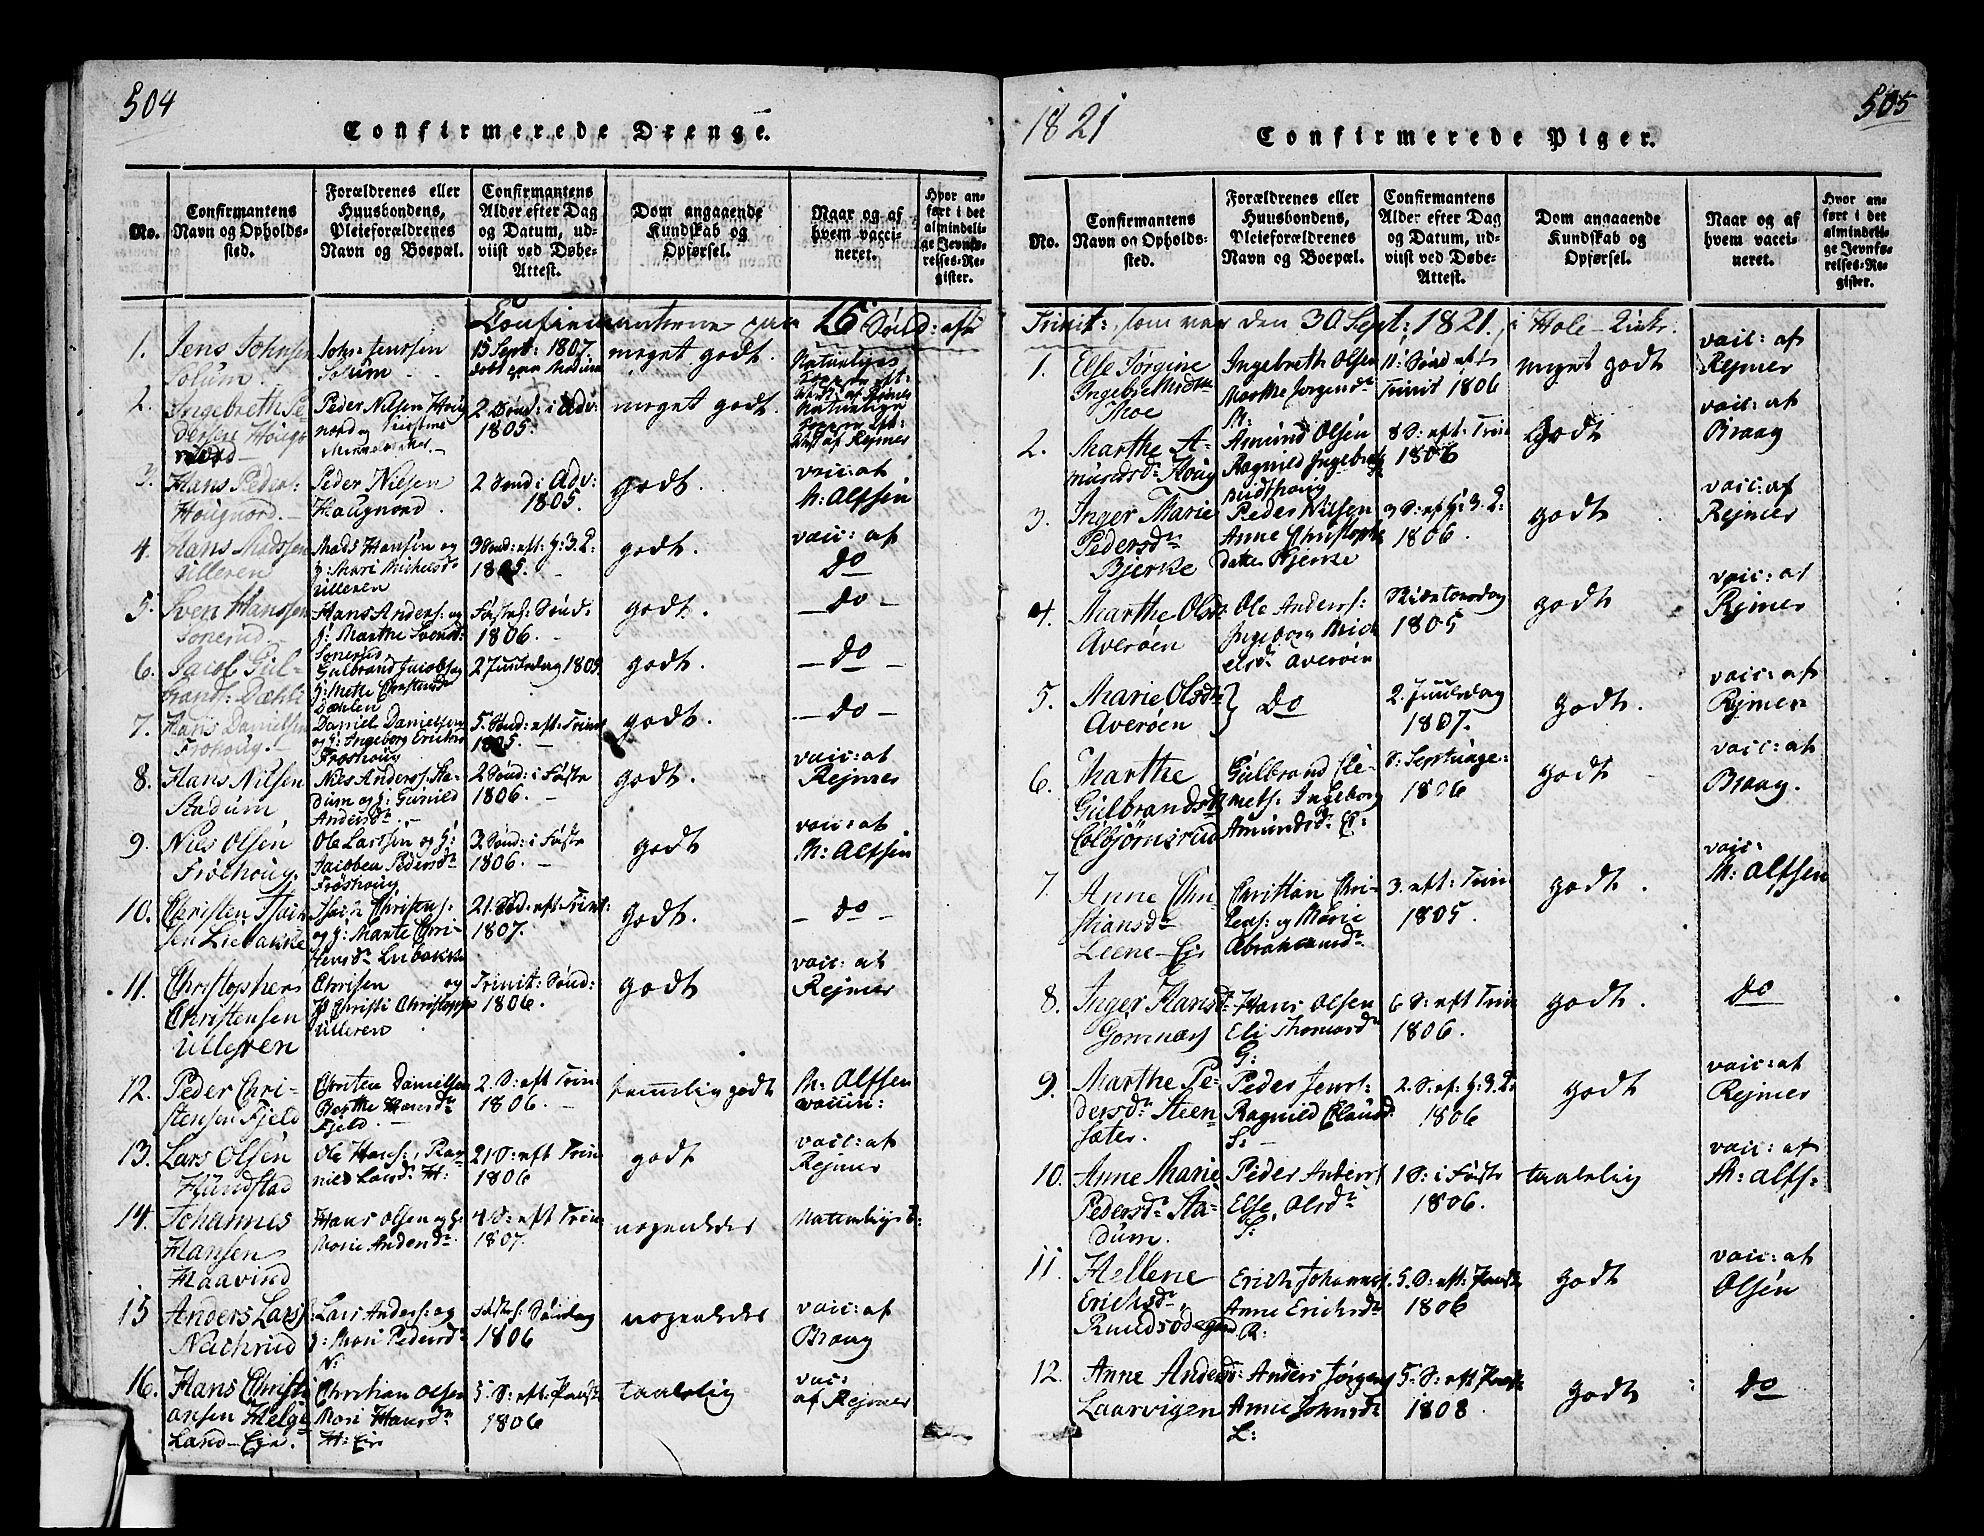 504
Confirmerede Drenge.
No.
Confirmantens
Navn og Opholds-
sted.
Forældrenes eller
Huusbondens,
Pleieforældrenes
Navn og Boepæl.
Confirmantens
Alder efter Dag
og Datum, ud-
viist ved Døbe-
Attest.
Dom angaaende
Kundskab og
Opførsel.
Naar og af
hvem vacci-
neret.
Hvor an-
ført i det
almindeli-
ge Jevnfø-
relses-Re-
gister.
Confirmanterne paa 15 Sønd: aft
1.
Jens Johnsen
Solum.
John Jenssen
Solum
15 Sept: 1807.
døbt
meget godt.
Naturlige
2.
Ingebreth Pe-
dersen Houg-
nord
Peder Nilsen Houg
nord og
2 Sønd: i Adv:
1805.
meget godt.
Naturlige
Att: af Rejmer
3.
Hans Peders:
Hougnord.
Peder Nilsen
Hougnord.
2 Sønd: Adv:
1805.
godt.
vacc: af
M: Alfsen
4.
Hans Madssen
Ulleren
Mads Hansen og
H: Mari Michelsd
Ulleren
3 Sønd: eft: H: 3. K:
1805.
godt.
vacc: af
Do
5.
Sven Hanssen
Sonerud
Hans Anders: og
H: Marthe Svensd:
Sonerud
Fastel: Sønd:
1806.
godt.
Do
6.
Jacob Gul-
brand: Dæhli
Gulbrand Jacobs og
H: Mette Christensd
Dæhlen
2 Juuledag 1805
godt.
Do
7.
Hans Danielsen
Froshoug.
Daniel Danielsen
og H: Ingeborg Erichsd
Froshoug
5. Sønd: eft: Trinit
1805.
godt.
Do
8.
Hans Nilsen
Stadum
Niels Anderss: Sta-
dum og H: Gunild
Andersdr.
2 Sønd: i Faste
1806.
godt.
vacc: af
Rejmer
9.
Niels Olsen
Frøshoug.
Ole Larssen og H:
Jacoben Pedersdr
Frøshoug
3. Sønd: i Faste
1806.
godt
vacc: af
M: Alfsen
10.
Christen Isac
sen Liebakke
Isac Christens:
og H: Marte Chri-
stensdr Liebakke
21. Sød: eft: Trinit:
1807.
godt.
Do
11.
Christopher
Christensen
Ulleren
Christen og
H Christi Christophs
Ulleren
Trinit: Sønd:
1806.
godt
vacc: af
Rejmer
12.
Peder Chri-
stensen Fjeld
Christen Danielsen
Berthe Hansdr
Fjeld.
2. S: eft Trin
1806.
temmelig godt
M: Alfsen
vaccin:
13.
Lars Olsen
Hundstad
Ole Hans:, Rag-
nild Larsdr H:
21 S: eft Trin
1806
godt
vacc: af
Rejmer
14.
Johannes
Hansen
Haavind
Hans Olsen og H:
Mari Andersdr
4 S: eft Trin
1807.
nogenledes
Naturlige
15
Anders Lars:
Nachrud
Lars Anders: og
H: Mari Pedersdr
N:
Søndag
1806
nogenledes
vacc: af
Braag
16.
Hans Christi
ansen Helge
land - Eje.
Christian Olsen
Mari Hansdr
H: Eje
5. S: eft: Paaske
1806
taalelig
vacc:
af Rejmer
1821
505
Confirmerede Piger.
No.
Confirmantens
Navn og Opholds-
sted.
Forældrenes eller
Huusbondens,
Pleieforældrenes
Navn og Boepæl.
Confirmantens
Alder efter Dag
og Datum, ud-
viist ved Døbe-
Attest.
Dom angaaende
Kundskab og
Opførsel.
Naar og af
hvem vacci-
neret.
Hvor an-
ført i det
almindeli-
ge Jevnfø-
relses-Re-
gister.
Trinit:, som var den 30 Sept: 1821. i Hole Kirke.
1.
Else Jørgine
Ingebrethsdtr
Moe
Ingebreth Olsen
Marthe Jørgensdr
M.
11: Sønd eft
Trinit 1806
meget godt
vacc: af
Rejmer
2.
Marthe A-
mundsd: Houg
Amund Olsen
Ragnild Ingebret
8 S: eft: Trin
1806
Godt
vacc: af
Braag
3.
Inger Marie
Pedersdr
Bjerke
Peder Nilsen
Anne Christophe
datter Bjerke
3 S: eft H: 3. K:
1806.
godt
vacc: af
Rejmer
4.
Marthe Olsd
Averøen
Ole Anders:
Ingeborg Mich
elsdr Averøen
Skiertorsdag
1805
godt
vacc: af
Rejmer
5.
Marie Olsdtr
Averøen
Do
2. Juuledag
1807.
godt.
vacc: af
Rejmer
6.
Marthe
Gulbrandsdtr
Colbjørnsrud
Gulbrand Cle-
mets: Ingeborg
Amundsdr C:
S: Septuage:
1806
godt
vacc: af
Braag.
7.
Anne Chri-
stiansdr
Leene - Eje
Christian Chri-
stens: og Marie
Abrahamsdr
3. eft: Trin
1805.
godt.
vacc:
M: Alfsen
8.
Inger Hansdr
Gomnæs
Hans Olsen
Eli Thomasdr
G:
6 S: eft Trin
1806.
godt.
Do
9.
Marthe Pe-
dersdr Steen
sæter.
Peder Jens:
Ragnild Clausd:
S:
2. S: eft: H: 3. K:
1806
godt
vacc: af
Rejmer
10.
Anne Marie
Pedersdr Sta-
dum.
Peder Anders:
Else Olsdr
S:
1 S: i Faste
1806.
taalelig
vacc: af
M: Alfs:
11.
Hellene
Erichsdr
Rundsødegaard
Erich Johanness:
Anne Erichsdr
R:
5. S: eft: Paaske
1806
godt
vacc: af
Olsen
12.
Anne Andersd:
Laarvigen
Anders Jørgens
Anne Johnsdr
L:
5. S: eft Paaske
1808
godt
Do